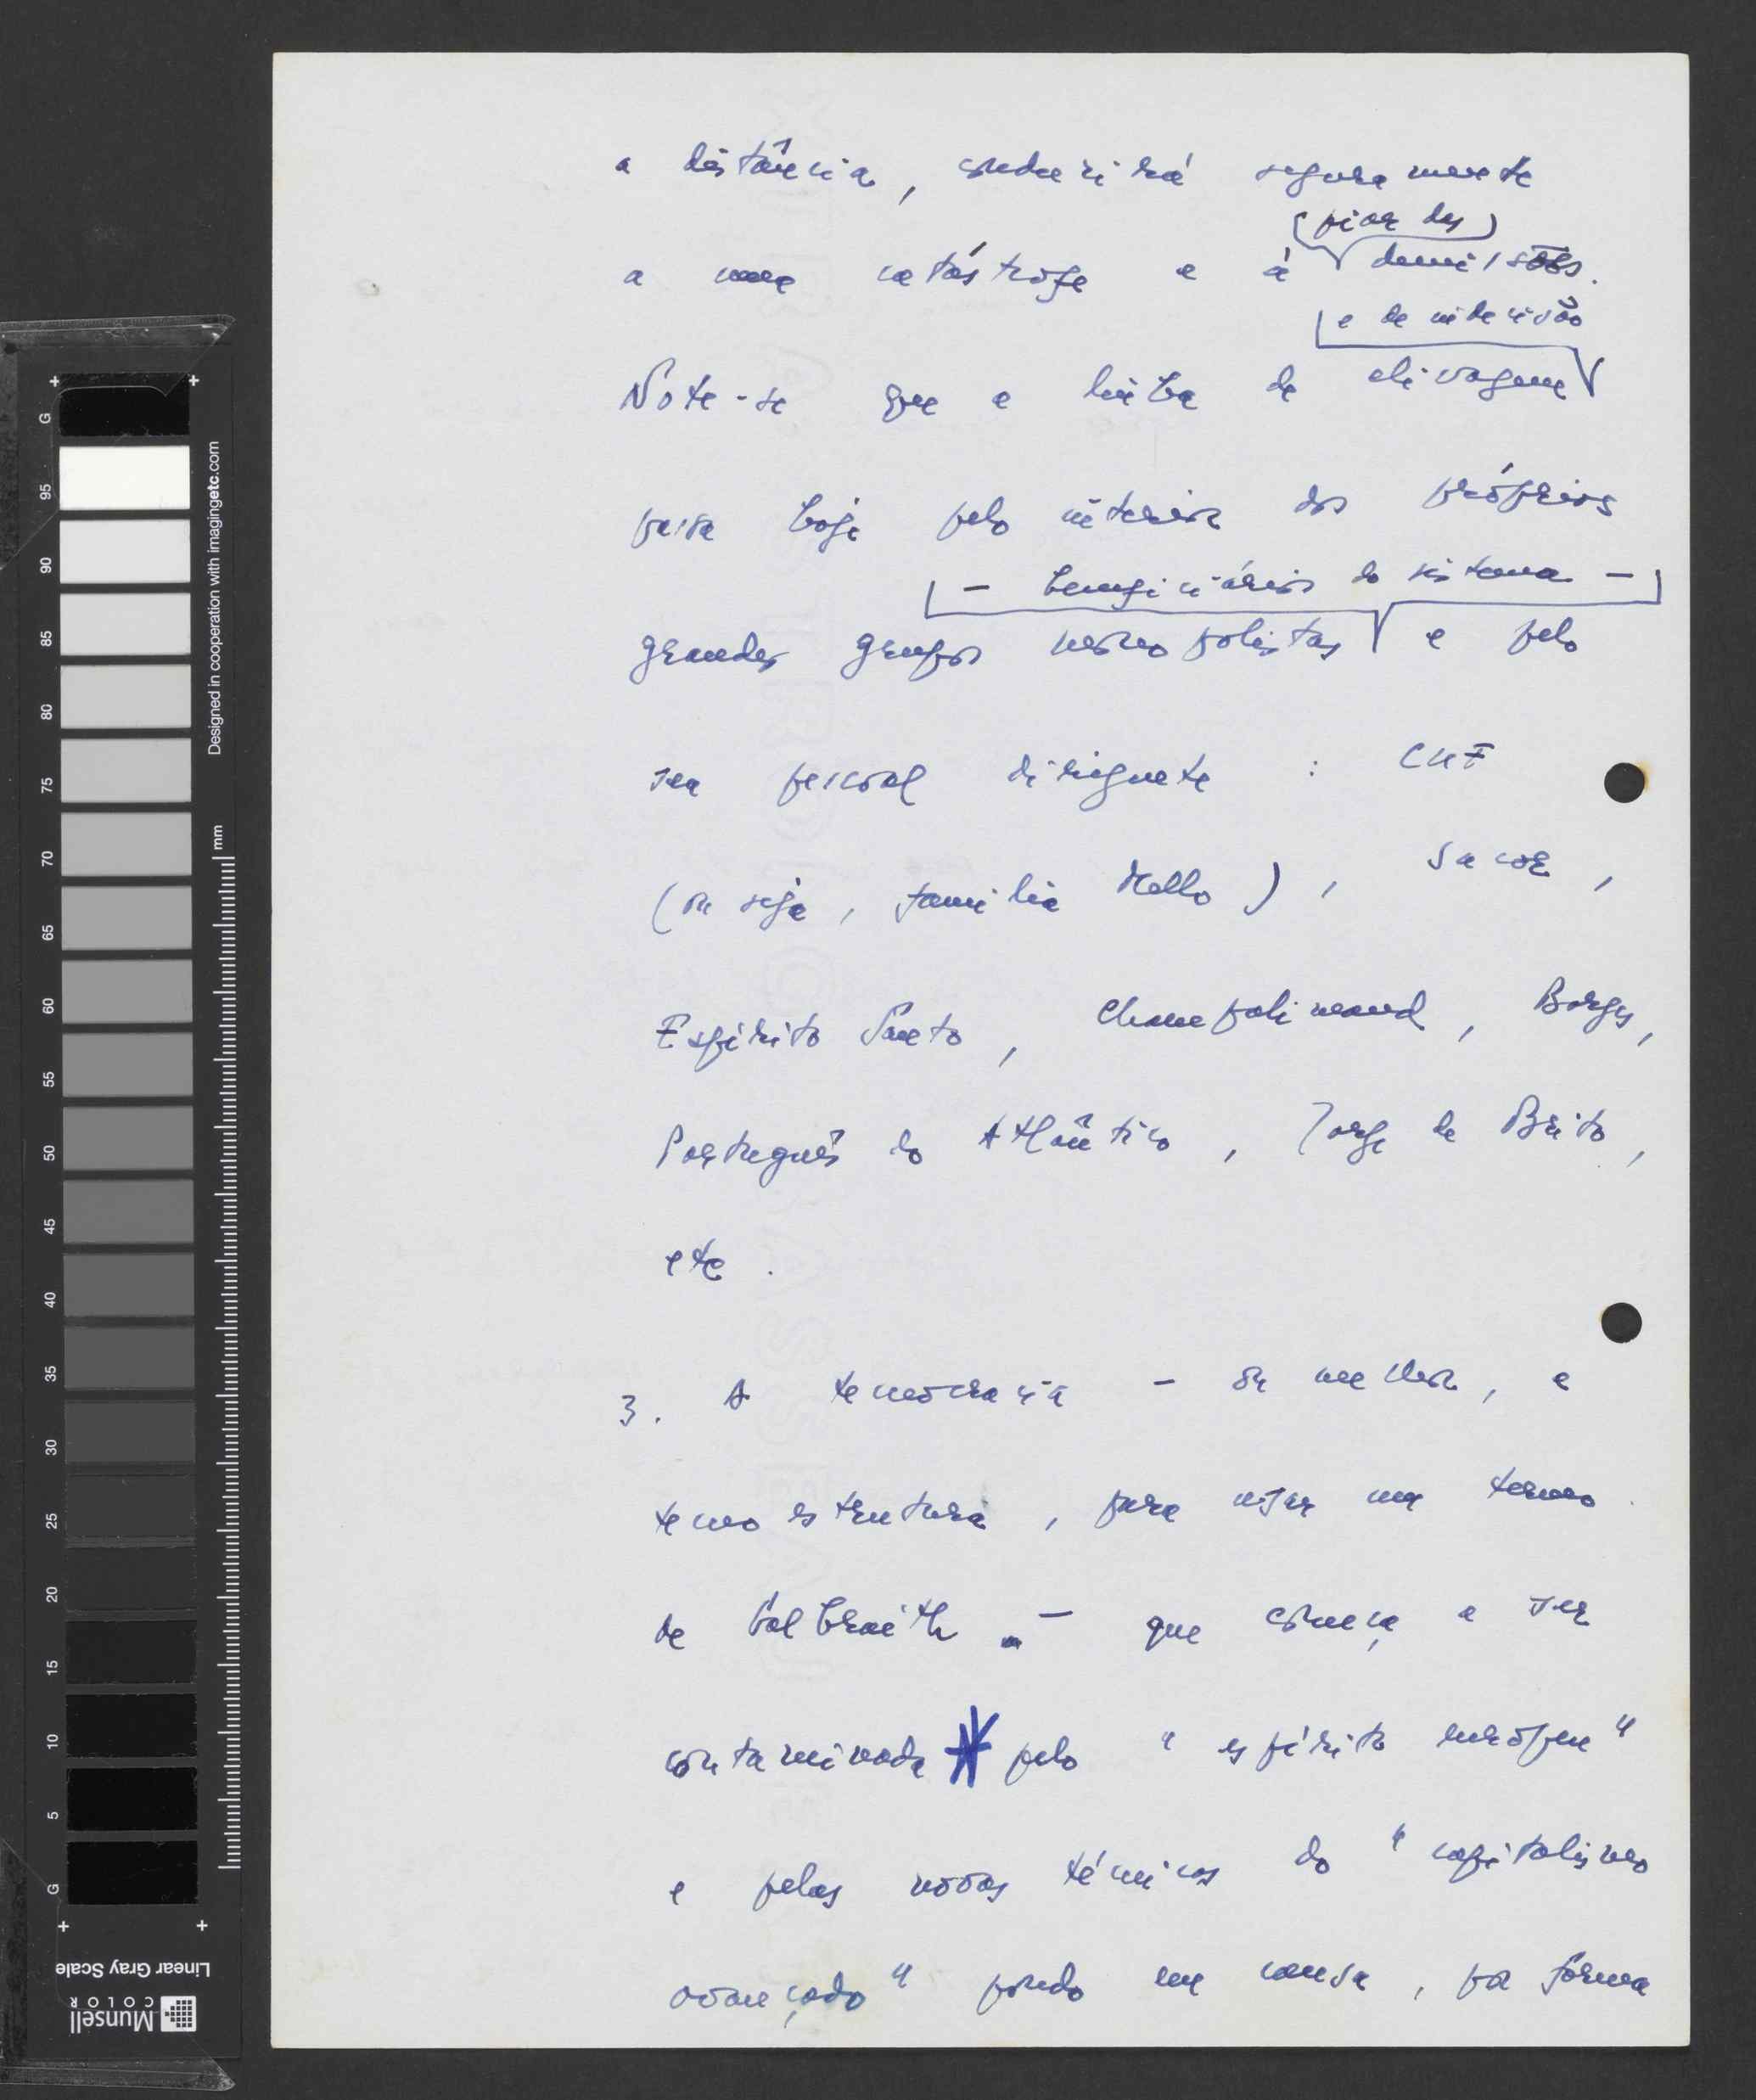 a distância, conduzirá seguramente
(pior das)
a uma catástrofe e à demissões.
e de indecisão
Note-se que a linha de clivagem
passa hoje pelo interior dos próprios
- beneficiários do sistema -
grandes grupos monopolistas e pelo
seu pessoal dirigente : CUF
(ou seja, família Mello), Sacor,
Espírito Santo, Champalimaud, Borges,
Português do Atlântico, Jorge de Brito,
etc.
3. A tecnocracia - ou melhor, a
tecnoestrutura, para usar um termo
de Galbraith - que começa a ser
contaminada pelo "espírito europeu"
e pelas novas técnicas do "capitalismo
avançado" pondo em causa, por forma
G
95
90
85
80
75
70
65
60
55
50
45
40
35
30
25
20
15
10
5
G
mm
Designed in cooperation with imagingetc.com
Linear Gray Scale
Munsell
COLOR